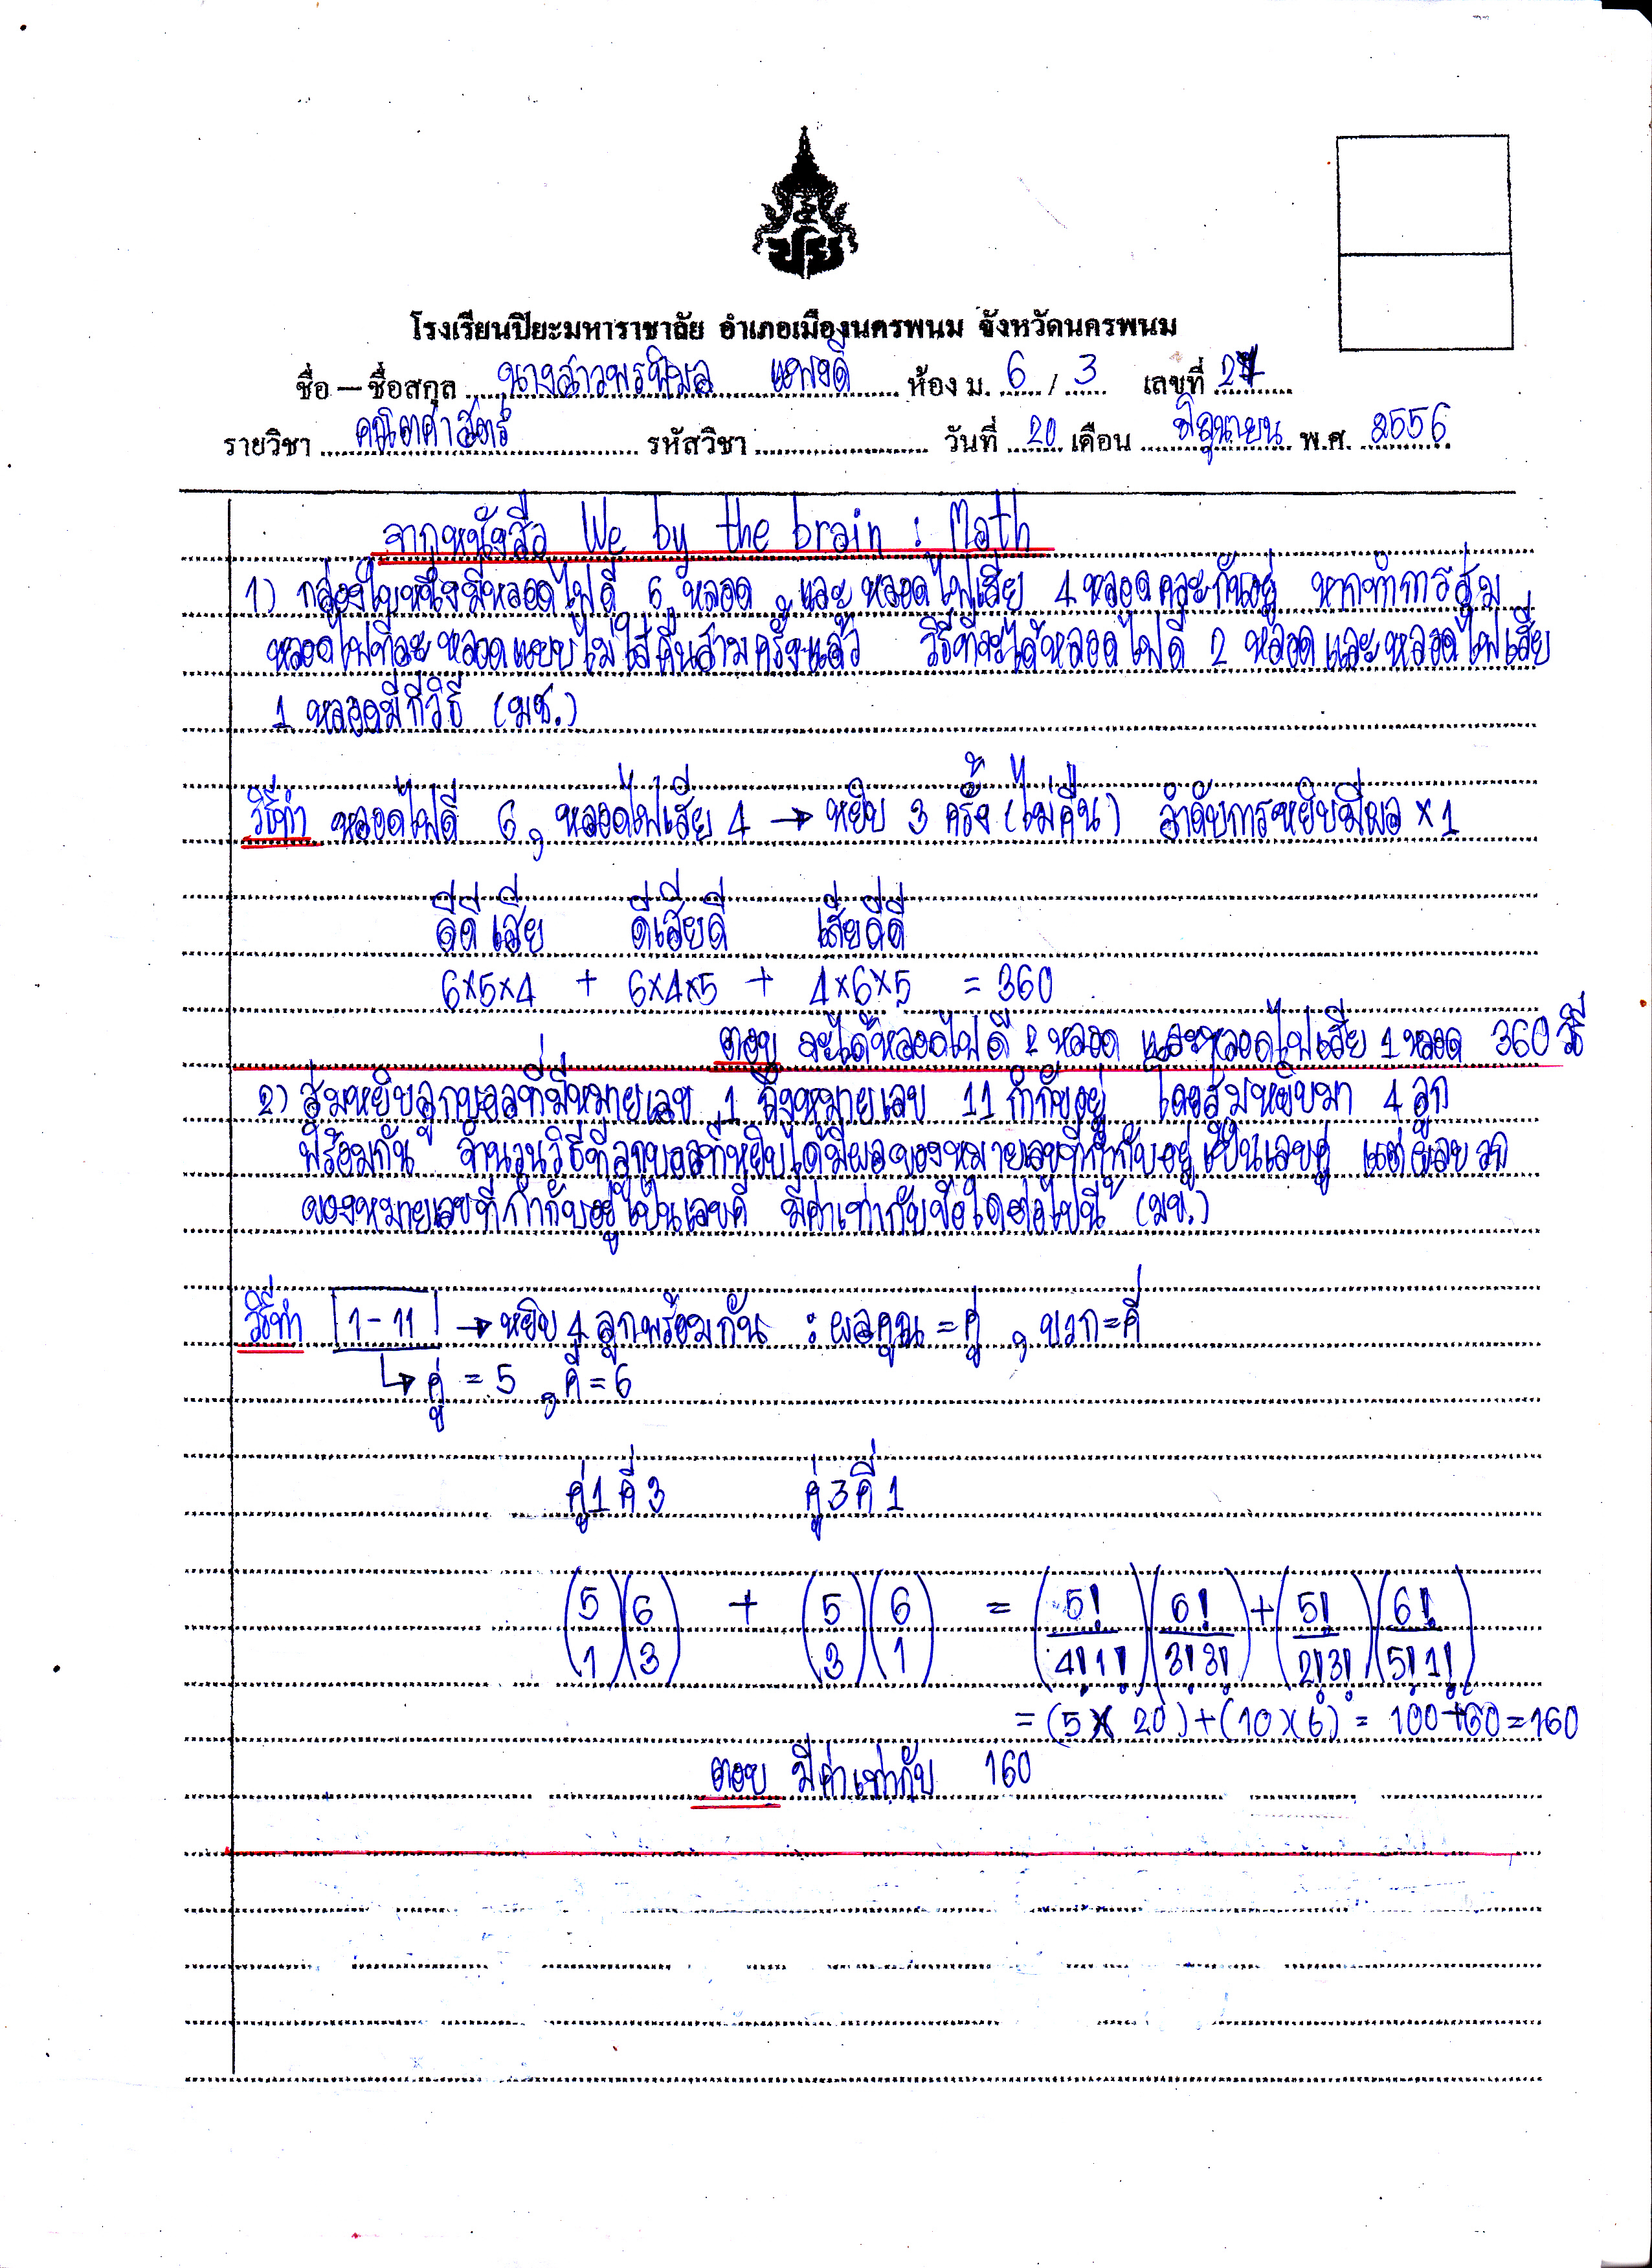 โรงเรียนปิยะมหาราชาลัย อำเภอเมืองนครพนม จังหวัดนครพนม
ชื่อ – ชื่อสกุล นางสาวพรพิมล แพงดี ห้อง ม. 6 / 3 เลขที่ 27
รายวิชา คณิตศาสตร์ รหัสวิชา วันที่ 20 เดือน มิถุนายน พ.ศ. 2556
จากหนังสือ We by the brain : Math
1) กล่องใบหนึ่งมีหลอดไฟดี 6 หลอด และ หลอดไฟเสีย 4 หลอดคละกันอยู่ หากทำการสุ่ม
หลอดไฟทีละ หลอดแบบไม่ใส่คืนสามครั้งแล้ว วิธีที่จะได้หลอดไฟดี 2 หลอด และ หลอดไฟเสีย
1 หลอดมีกี่วิธี (มช.)
วิธีทำ หลอดไฟดี 6, หลอดไฟเสีย 4 → หยิบ 3 ครั้ง (ไม่คืน) ลำดับการหยิบมีผล × 1
ดีดีเสีย ดีเสียดี เสียดีดี
6×5×4 + 6×4×5 + 4×6×5 = 360
ตอบ จะได้หลอดไฟดี 2 หลอด และหลอดไฟเสีย 1 หลอด 360 วิธี
2) สุ่มหยิบลูกบอลที่มีหมายเลข 1 ถึงหมายเลข 11 กำกับอยู่ โดยสุ่มหยิบมา 4 ลูก
พร้อมกัน จำนวนวิธีที่ลูกบอลที่หยิบได้มีผลของหมายเลขที่กำกับอยู่เป็นเลขคู่ แต่ผลบวก
ของหมายเลขที่กำกับอยู่เป็นเลขคี่ มีค่าเท่ากับข้อใดต่อไปนี้ (มข.)
วิธีทำ 1-11 → หยิบ 4 ลูกพร้อมกัน : ผลคูณ = คู่ , บวก = คี่
↳ คู่ = 5 , คี่ = 6
คู่ 1 คี่ 3 คู่ 3 คี่ 1
(5 1)(6 3) + (5 3)(6 1) = (5!/4!1!)(6!/3!3!) + (5!/2!3!)(6!/5!1!)
= (5 × 20) + (10 × 6) = 100+60 = 160
ตอบ มีค่าเท่ากับ 160